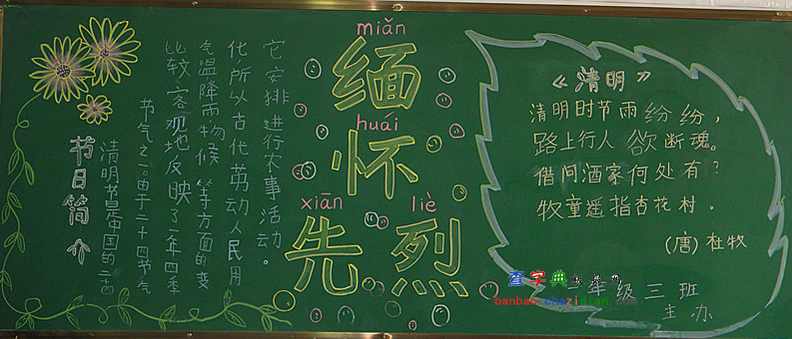 节日简介
清明节是中国的二十四
节气之一。由于二十四节气
比较客观地反映了一年四季
气温降雨物候等方面的变
化所以古代劳动人民用
它安排进行农事活动。
miǎn
缅
huái
怀
xiān liè
先烈
《清明》
清明时节雨纷纷，
路上行人欲断魂。
借问酒家何处有？
牧童遥指杏花村。
(唐)杜牧
年级三班
主办
查字典
banbao.chazidian.com